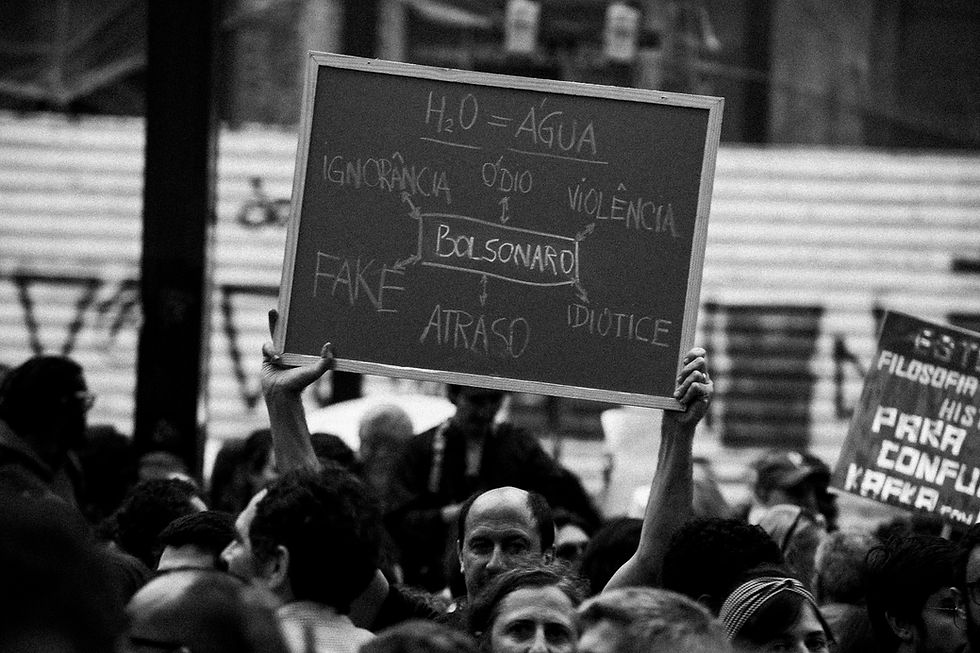 H₂O = ÁGUA
IGNORÂNCIA ÓDIO VIOLÊNCIA
BOLSONARO
FAKE ATRASO IDIOTICE
FILOSOFIA
PARA